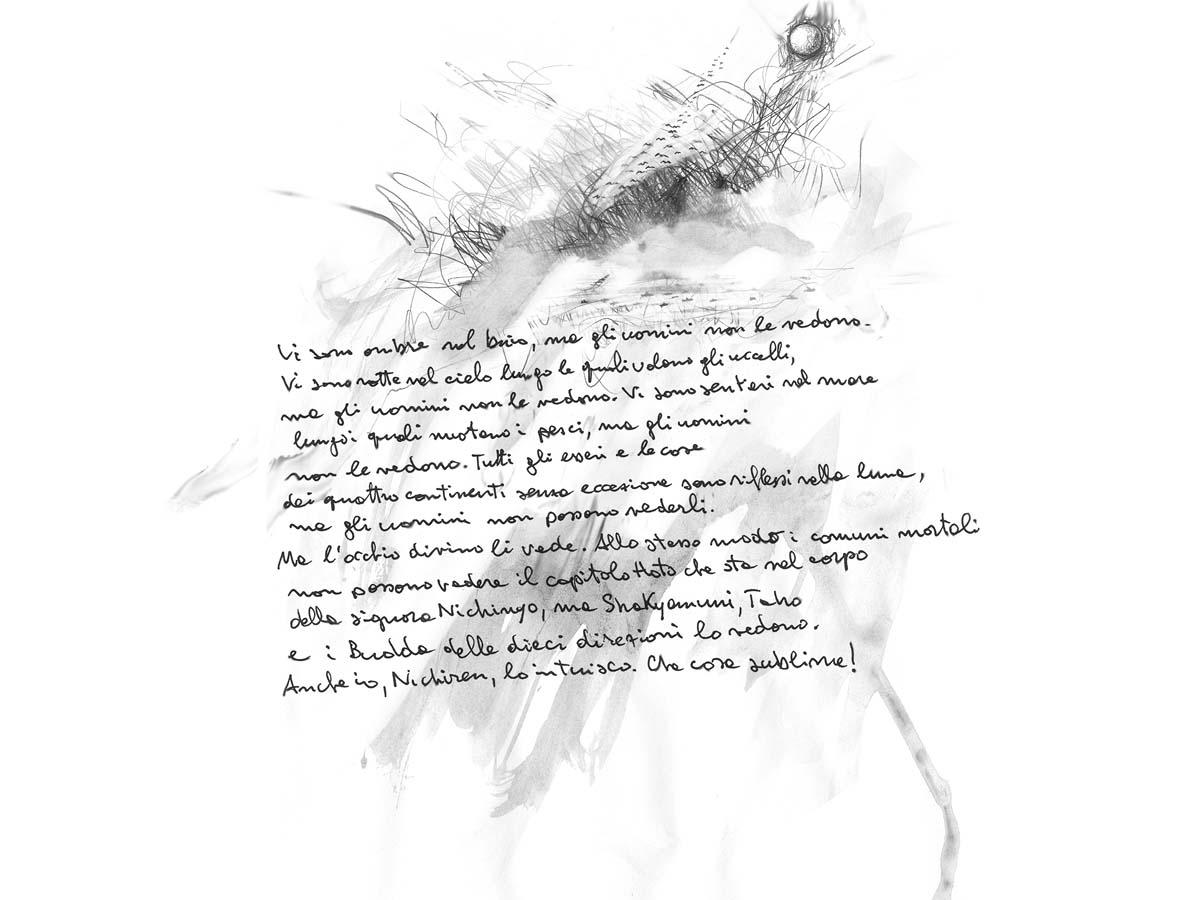 Vi sono ombre nel buio, ma gli uomini non le vedono.
Vi sono rotte nel cielo lungo le quali volano gli uccelli,
ma gli uomini non le vedono. Vi sono sentieri nel mare
lungo i quali nuotano i pesci, ma gli uomini
non le vedono. Tutti gli esseri e le cose
dei quattro continenti senza eccezione sono riflessi nella luna,
ma gli uomini non possono vederli.
Ma l'occhio divino li vede. Allo stesso modo i comuni mortali
non possono vedere il capitolo Hoto che sta nel corpo
della signora Nichinyo, ma Shakyamuni, Taho
e i Budda delle dieci direzioni lo vedono.
Anche io, Nichiren, lo intuisco. Che cosa sublime!